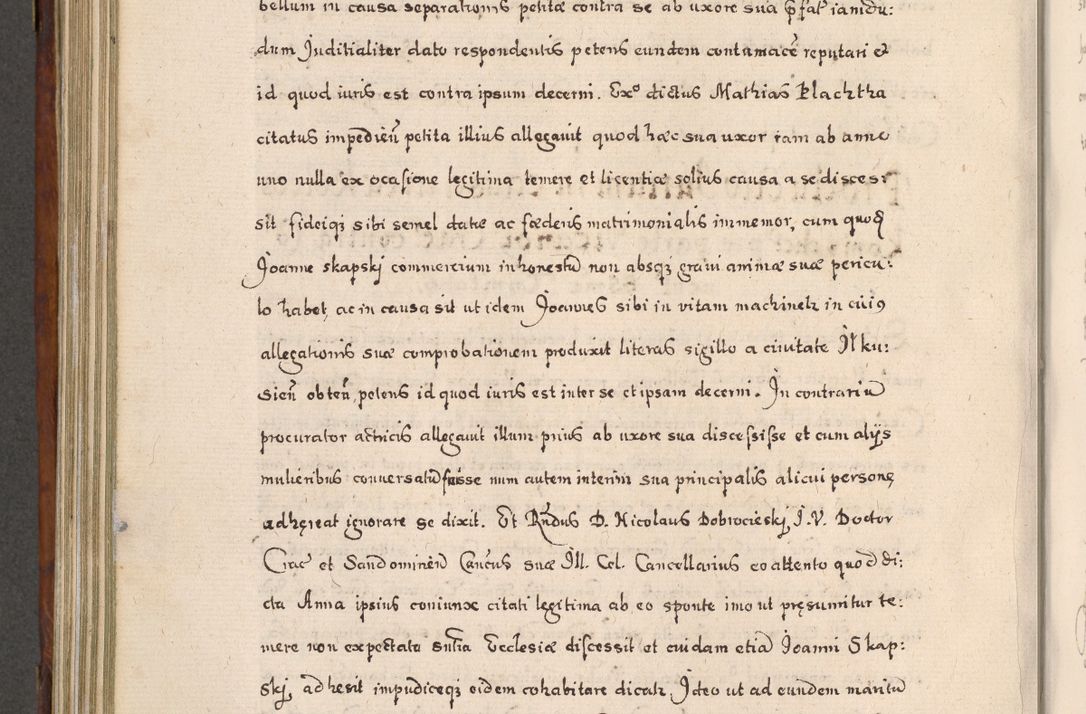 bellum in causa separationis petitæ contra se ab uxore sua p̃fat iamdu:
dum Juditialiter dato respondentis petens eundem contumacẽ reputari et
id quod iuris est contra ipsum decerni. Exº dictus Mathias Plachtha
citatus impedieñ petita illius allegauit quod hæc sua uxor iam ab anno
uno nulla ex ocasione legitima temere et licentiæ solius causa a se disces:
sit fideiqȝ sibi semel datæ ac fœderis matrimonialis immemor, cum quođ
Joanne skapskj commercium inhonestũ non absqȝ graui animæ suæ pericu:
lo habet, ac in causa sit ut idem Joannes sibi in vitam machinetr in cui9
allegationis suæ comprobationem produxit literas sigillo a ciuitate Ilku:
sieñ obteñ, petens id quod iuris est inter se et ipsam decerni. In contrariũ
procurator actricis allegauit illum prius ab uxore sua discessisse et cum alijs
mulieribus conuersatũ fuisse num autem interim sua principalis alicui personę
adhęreat ignorare se dixit. Et Rñdus D. Nicolaus Dobrocieskj J. V. Doctor
Crac et Sandomireñ Cañcus suæ Ill. Cel. Cancellarius eo attento quod di:
cta Anna ipsius coniunx citati legitima ab eo sponte imo ut pręsumitur te:
mere non expectata sñtia Ecclesiæ discessit et cuidam etiã Joanni Skap:
skj, adhesit impudiceqȝ eidem cohabitare dicatr. Ideo ut ad eundem maritũ